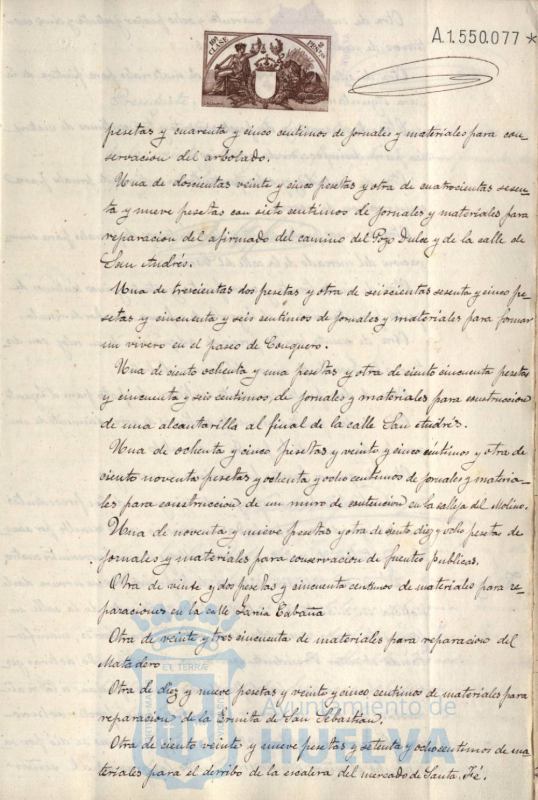 10ª CLASE
2 PESETAS
A.1.550.077 *
pesetas y cuarenta y cinco centimos de jornales y materiales para con-
servacion del arbolado.
Una de doscientas veinte y cinco pesetas y otra de cuatrocientas sesen-
ta y nueve pesetas con siete centimos de jornales y materiales para
reparacion del afirmado del camino del Pozo Dulce y de la calle de
San Andrés.
Una de trescientas dos pesetas y otra de seiscientas sesenta y cinco pe-
setas y cincuenta y seis centimos de jornales y materiales para formar
un vivero en el paseo de Conquero.
Una de ciento ochenta y una pesetas y otra de ciento cincuenta pesetas
y cincuenta y seis céntimos de jornales y materiales para construccion
de una alcantarilla al final de la calle San Andrés.
Una de ochenta y cinco pesetas y veinte y cinco céntimos y otra de
ciento noventa pesetas y ochenta y ocho centimos de jornales y materia-
les para construccion de un muro de contencion en la calleja del Molino.
Una de noventa y nueve pesetas y otra de ciento diez y ocho pesetas de
jornales y materiales para conservacion de fuentes publicas.
Otra de veinte y dos pesetas y cincuenta centimos de materiales para re-
paraciones en la calle
Otra de veinte y tres cincuenta de materiales para reparacion del
Matadero
Otra de diez y nueve pesetas y veinte y cinco centimos de materiales para
reparacion de la Ermita de San Sebastian.
Otra de ciento veinte y nueve pesetas y setenta y ocho centimos de ma-
teriales para el derribo de la escalera del mercado de Santa Fé.
ET TERRÆ
Ayuntamiento de
HUELVA